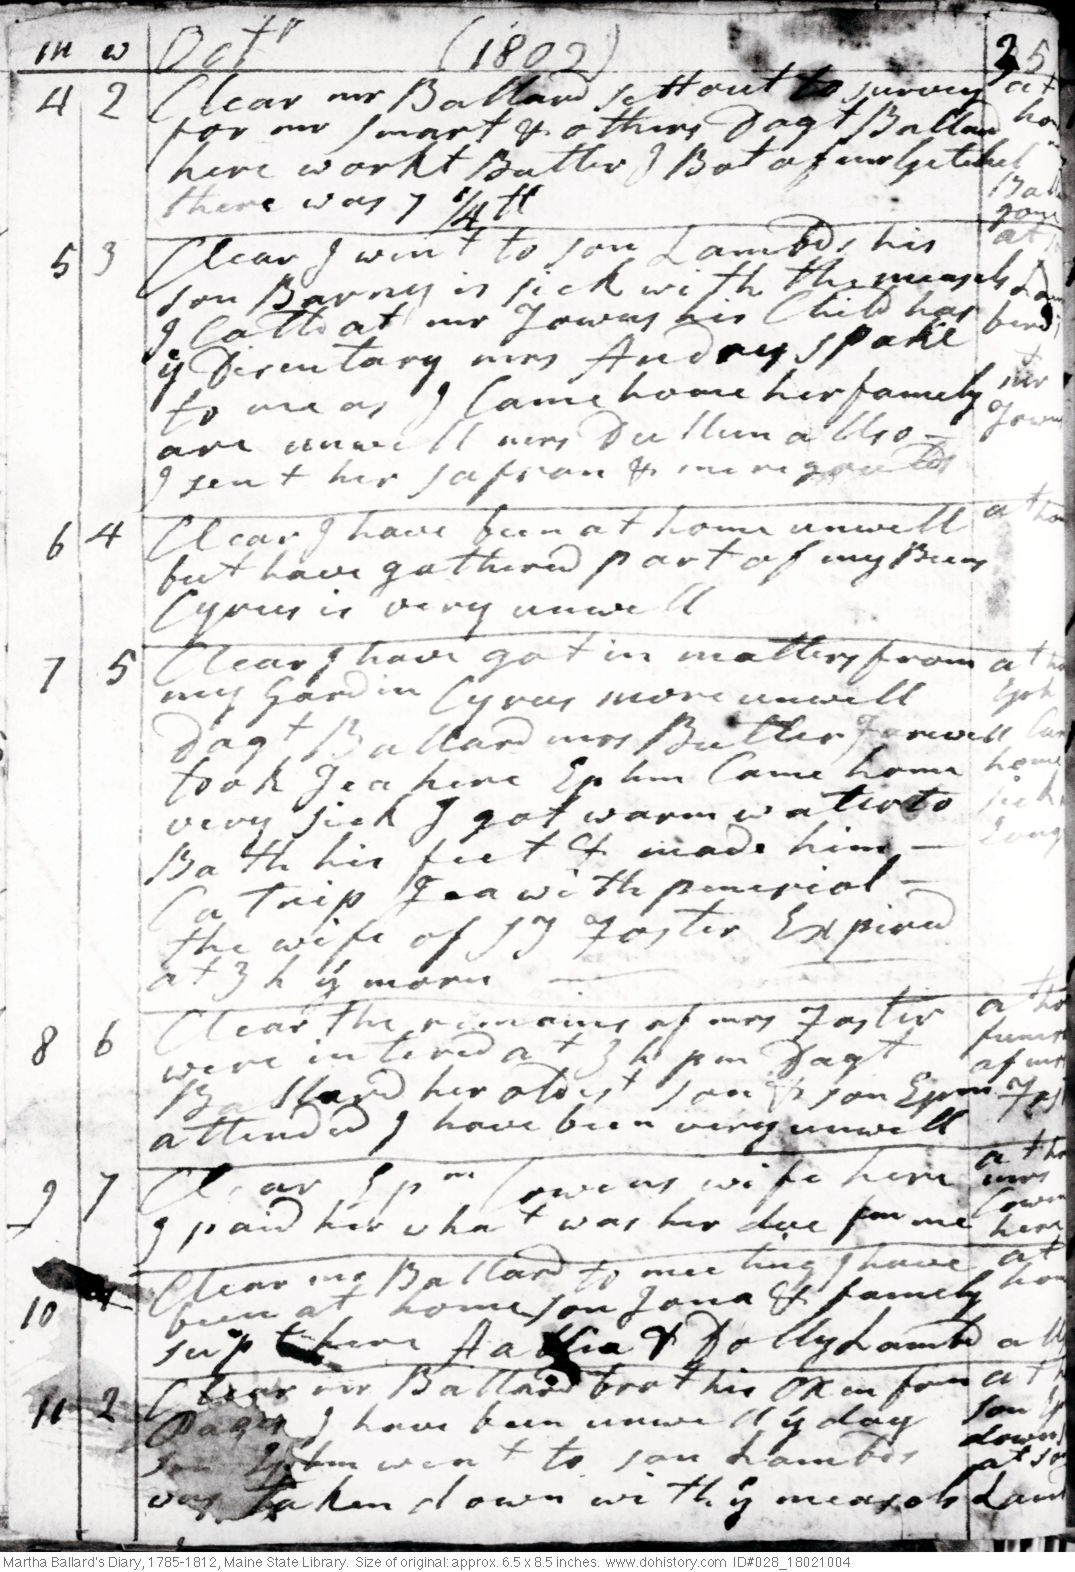 m w Octr (1802) 25
4 2 Clear mr Ballard sett out to survey at
for mr Smart & others Dagt Ballard
here workt Butter I Bot of mr Getchel
there was 7 1/4 lb
5 3 Clear I went to son Lambds his at
son Barney is sick with the measels
I Calld at mr Towns his Child has
ÿ Disentary mrs Andrus spake mr
to me as I Came home her family
are unwell mrs Dullun allso
I sent her safron & merigoulds
6 4 Clear I have been at home unwell
but have gathered part of my Beens
Cyrus is very unwell
7 5 Clear I have got in matters from at
my Gardin Cyrus more unwell Eph
Dagt Ballard mrs Butler Farwell
took Tea here Ephm Came home home
very sick I got warm water to sick
Bath his feet & made him
Catnip Tea with
the wife of Foster Expired
at 3 h ÿ morn
8 6 Clear the remains of mrs Foster at
were intered at 3 h pm Dagt
Ballard her oldest son & son Epm
attended I have been very unwell
9 7 Clear Epm Cowens wife here mrs
I paid her what was her due from me here
10 1 Clear mr Ballard to meeting I have at
been at home son Jona & family
supt here & Dolly Lambd
11 2 Clear mr Ballard brot his Oxen from at
Pages I have been unwell ÿ day son
son Ephm went to son Lambds down
was taken down with ÿ measels at
Martha Ballard's Diary, 1785-1812, Maine State Library. Size of original: approx. 6.5 x 8.5 inches. www.dohistory.com ID#028_18021004